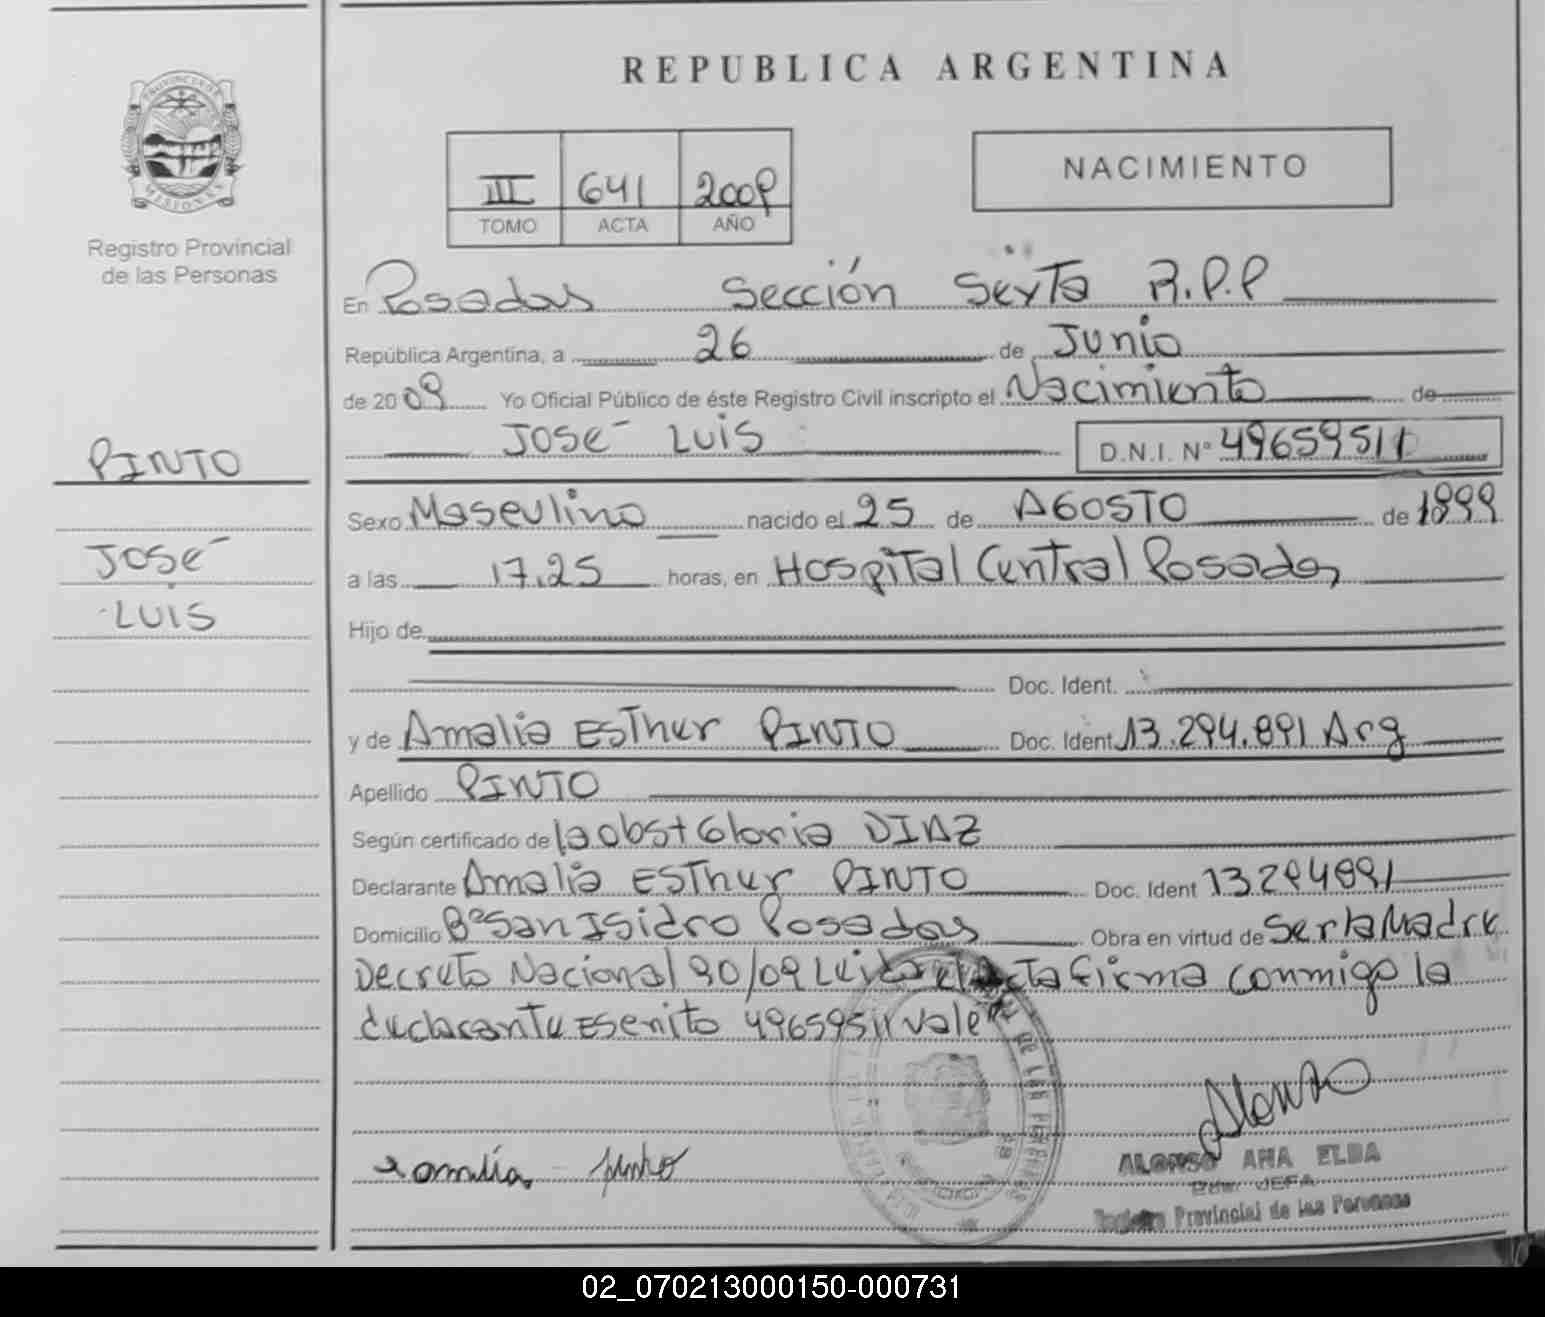 REPUBLICA ARGENTINA
PROVINCIA DE
MISIONES
Registro Provincial
de las Personas
III 641 2009
TOMO ACTA AÑO
NACIMIENTO
En Posadas Sección Sexta R.P.P
República Argentina, a 26 de Junio
de 2009 Yo Oficial Público de éste Registro Civil inscripto el Nacimiento de
JOSÉ LUIS D.N.I. Nº 49659511
PINTO
JOSÉ
LUIS
Sexo Masculino nacido el 25 de AGOSTO de 1999
a las 17,25 horas, en Hospital Central Posadas
Hijo de
Doc. Ident.
y de Amalia Esther PINTO Doc. Ident 13.294.891 Arg
Apellido PINTO
Según certificado de la obst Gloria DIAZ
Declarante Amalia Esther PINTO Doc. Ident 13294891
Domicilio Bº San Isidro Posadas Obra en virtud de Ser la Madre
Decreto Nacional 90/09 Leida el acta firma conmigo la
declarante Escrito 49659511 vale
Amalia pinto
Alonso
ALONSO ANA ELBA
JEFA
Registro Provincial de las Personas
02_070213000150-000731